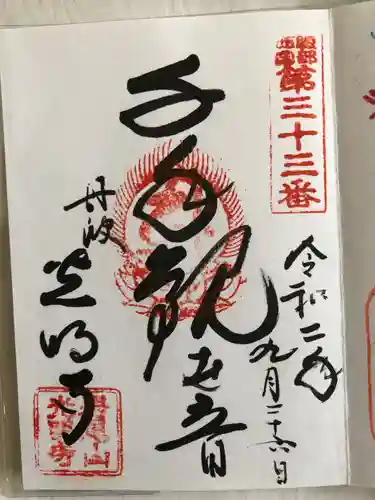 第三十三番
令和二年
九月二十六日
千手観世音
丹波
光明寺